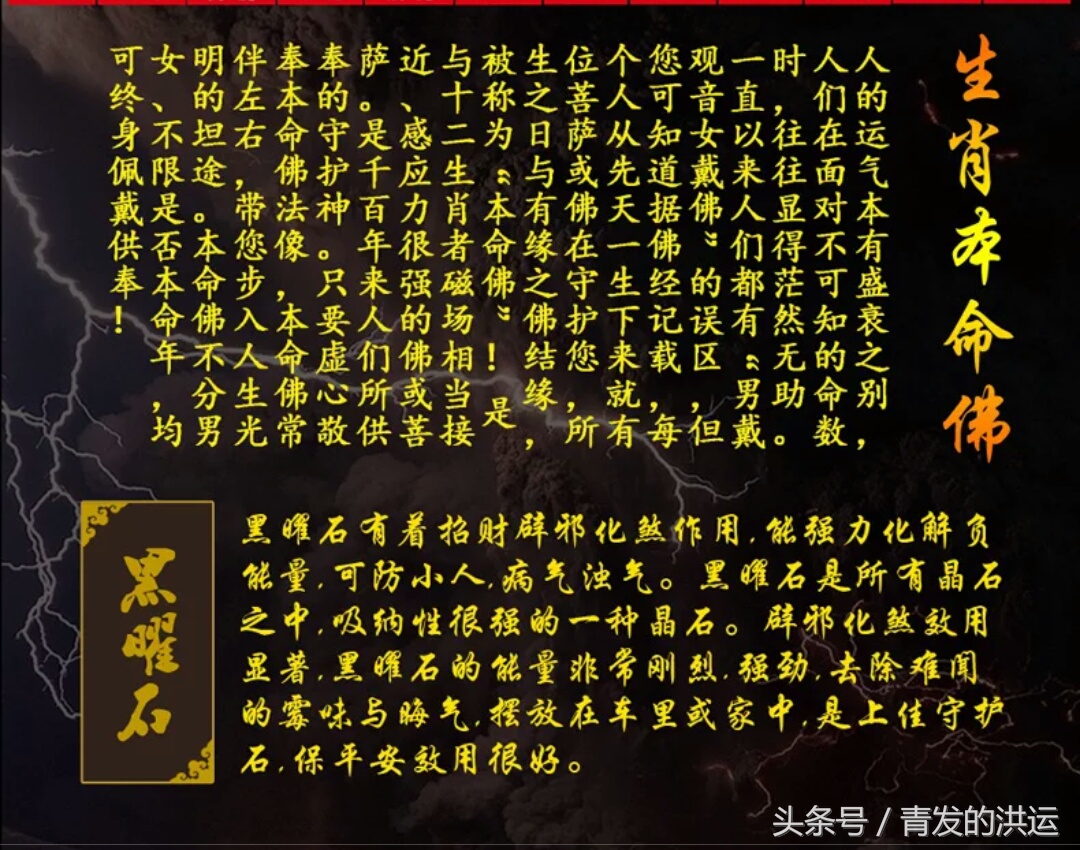 生肖本命佛
人的运气本有盛衰之别，
人们在面对不可知的命数，
时，往往显得茫然无助。
一直以来人们都有“男戴
观音女戴佛”的误区，但
您可知道据佛经记载，每
个人从先天一生下来就有
位菩萨或佛在守护您，所
生之日与有缘之佛结缘，
被称为“本命佛”！是
与十二生肖者磁场相当接
近、感应力很强的佛或菩
萨。是千百年来人们所供
奉的守护神。只要虚心敬
奉本命佛法像，本命佛常
伴左右，带您步入人生光
明的坦途。本命佛不分男
女、不限是否本命年，均
可终身佩戴供奉！
黑曜石
黑曜石有着招财辟邪化煞作用,能强力化解负
能量,可防小人,病气浊气。黑曜石是所有晶石
之中,吸纳性很强的一种晶石。辟邪化煞效用
显著,黑曜石的能量非常刚烈,强劲,去除难闻
的霉味与晦气,摆放在车里或家中,是上佳守护
石,保平安效用很好。
头条号 / 青发的洪运